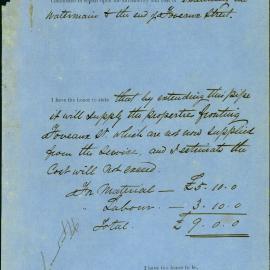 watermain to the end of Foveaux Street.
I have the honor to state that by extending this pipe
it will supply the properties fronting
Foveaux St. which are not now supplied
from the Service, and I estimate the
Cost will not exceed.
For Material — £5.10.0
" Labour — 3.10.0
Total. £ 9.0.0
I have the honor to be,